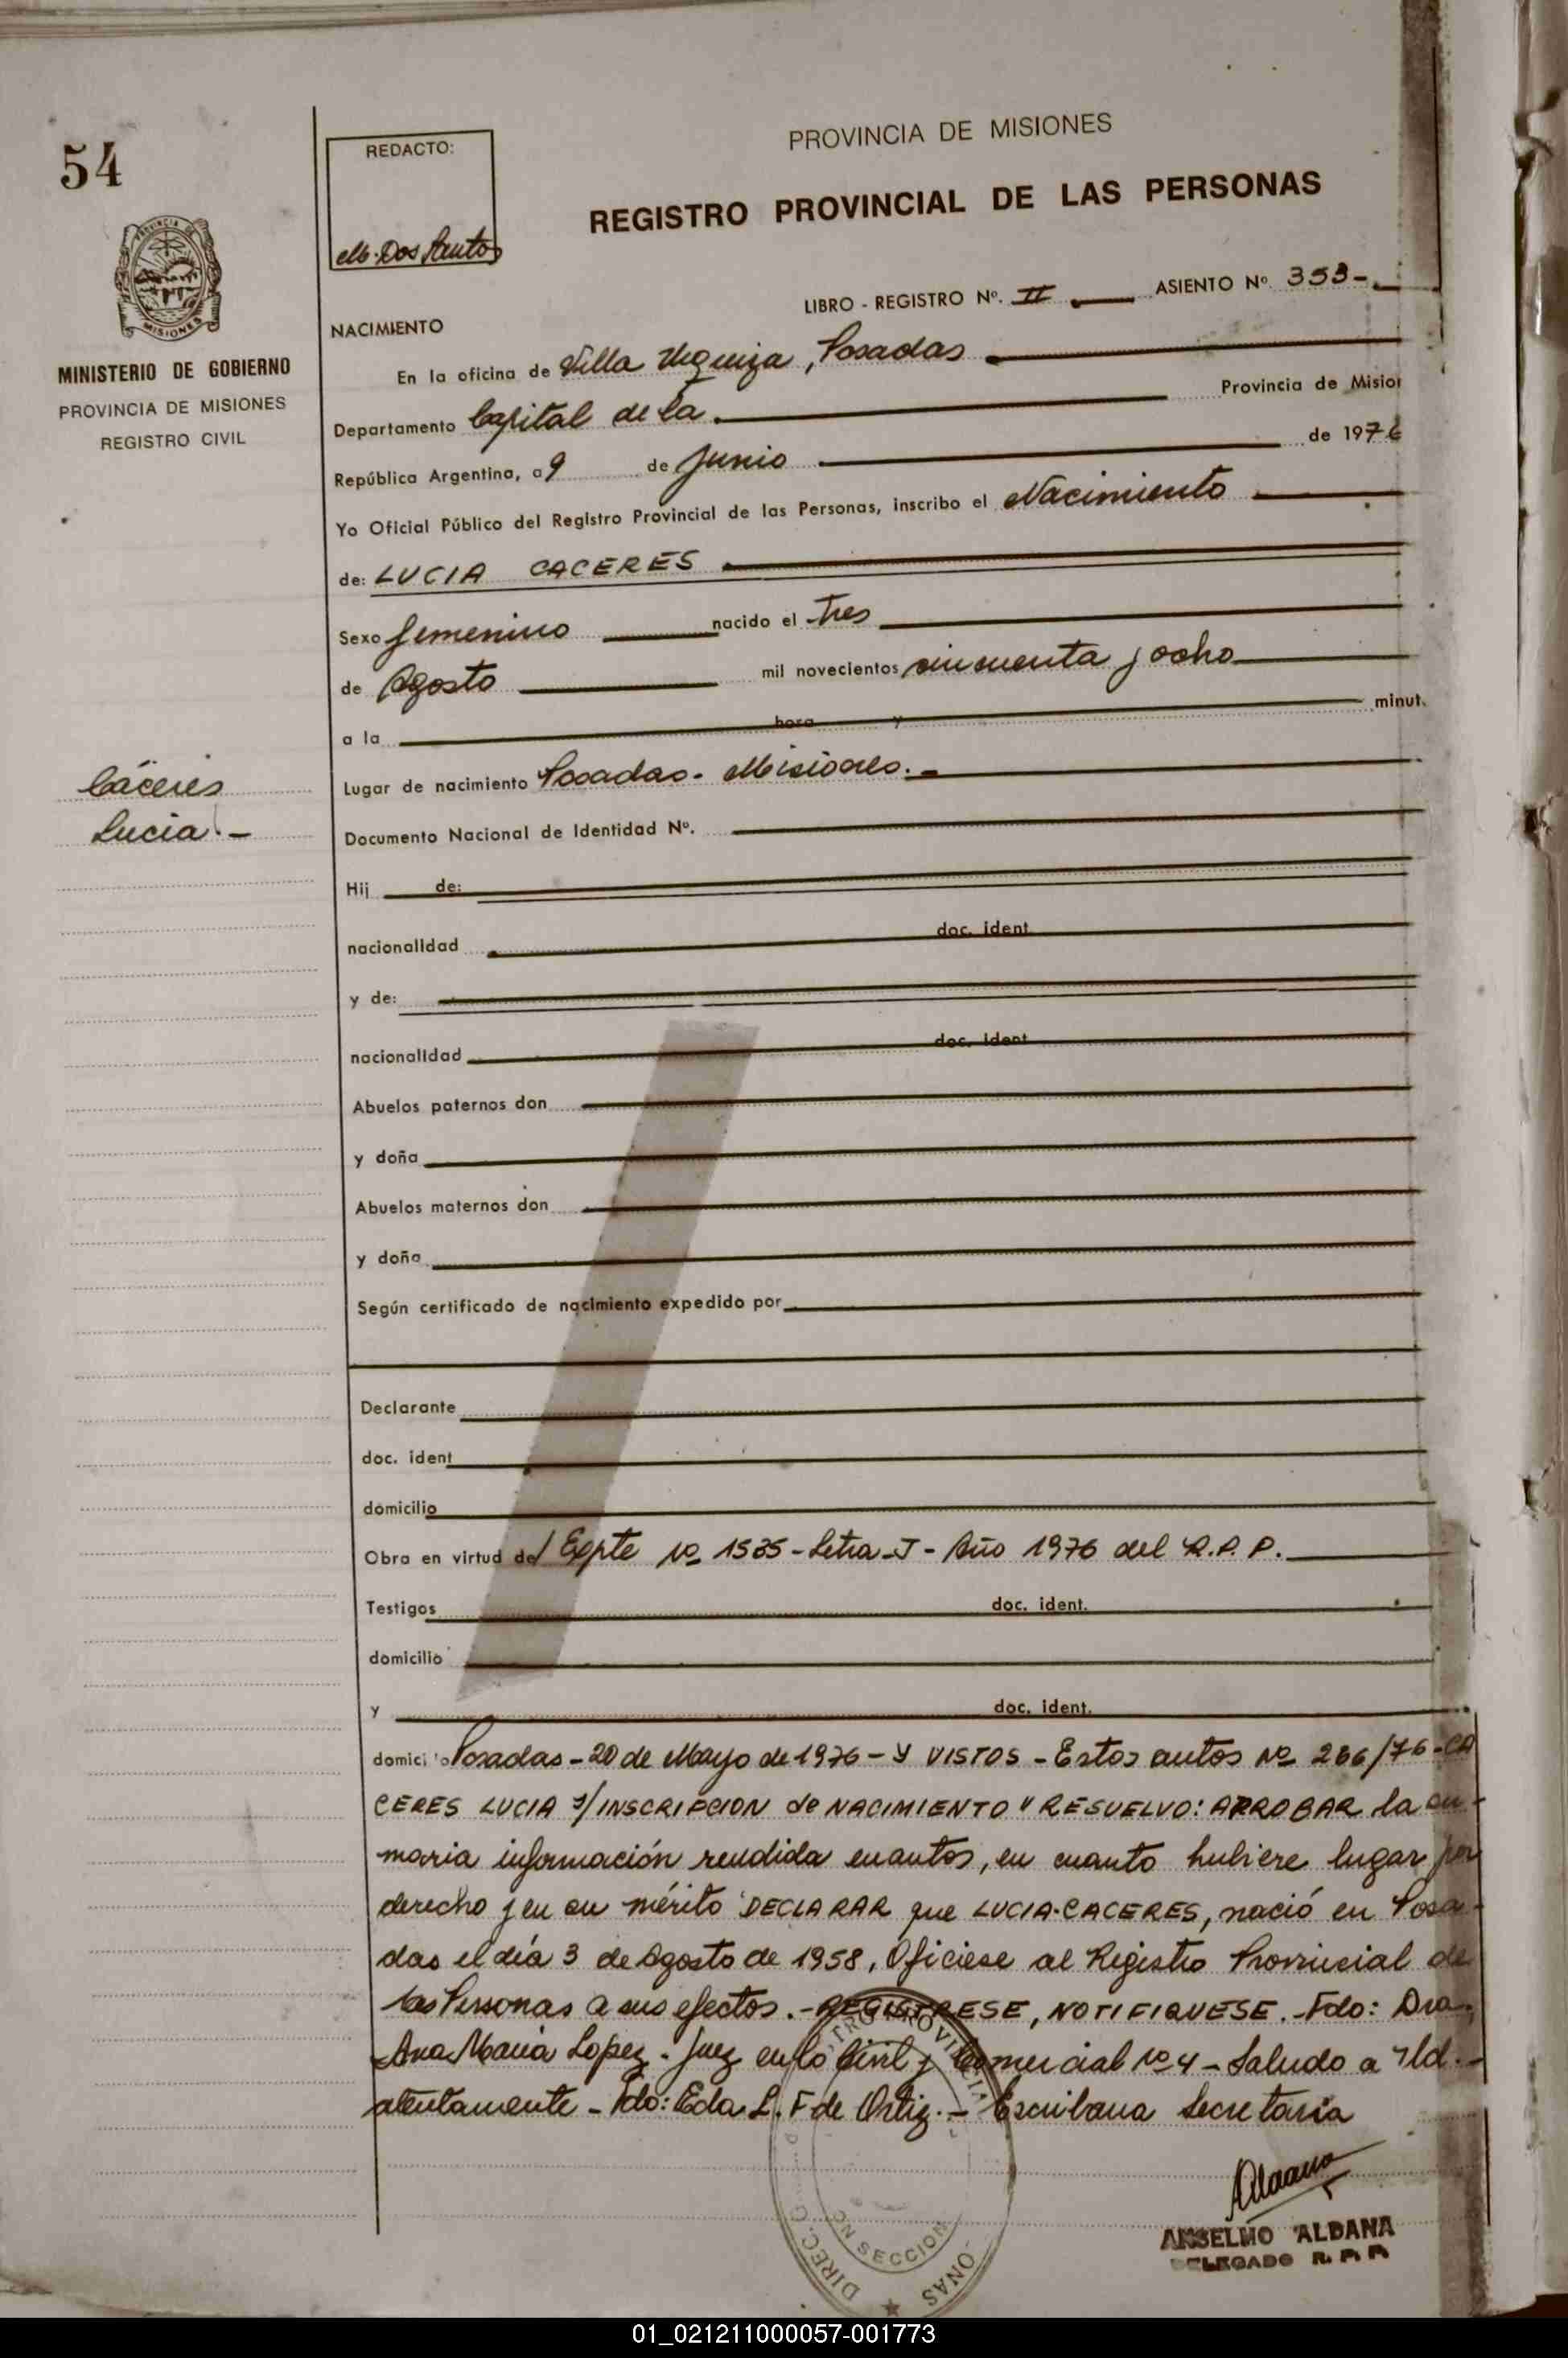 54
PROVINCIA DE
MISIONES
MINISTERIO DE GOBIERNO
PROVINCIA DE MISIONES
REGISTRO CIVIL
Cáceres
Lucia.-
REDACTO:
M. Dos Santos
PROVINCIA DE MISIONES
REGISTRO PROVINCIAL DE LAS PERSONAS
LIBRO - REGISTRO Nº. II ASIENTO Nº. 353-
NACIMIENTO
En la oficina de Villa Urquiza, Posadas
Departamento Capital de la Provincia de Mision
República Argentina, a 9 de Junio de 1976
Yo Oficial Público del Registro Provincial de las Personas, inscribo el Nacimiento
de: LUCIA CACERES
Sexo femenino nacido el tres
de Agosto mil novecientos cincuenta y ocho
a la hora y minut.
Lugar de nacimiento Posadas - Misiones.-
Documento Nacional de Identidad Nº.
Hij de:
nacionalidad doc. ident
y de:
nacionalidad doc. ident
Abuelos paternos don
y doña
Abuelos maternos don
y doña
Según certificado de nacimiento expedido por
Declarante
doc. ident
domicilio
Obra en virtud del Expte Nº 1535 - Letra J - Año 1976 del R.P.P.
Testigos doc. ident.
domicilio
y doc. ident.
domicilio Posadas - 20 de Mayo de 1976 - Y VISTOS - Estos autos Nº 266/76 - CA
CERES LUCIA s/ INSCRIPCION de NACIMIENTO " RESUELVO: APROBAR la su-
maria información rendida en autos, en cuanto hubiere lugar por
derecho y en su mérito DECLARAR que LUCIA CACERES, nació en Posa-
das el día 3 de Agosto de 1958, Ofíciese al Registro Provincial de
las Personas a sus efectos.- REGISTRESE, NOTIFIQUESE.- Fdo: Dra.
Ana Maria Lopez - Juez en lo Civil y Comercial Nº 4 - Saludo a Ud.-
atentamente - Fdo: Eda L. F de Ortiz.- Escribana Secretaria
Aldana
ANSELMO ALDANA
DELEGADO R. P. P.
SECCION
DIREC.
01_021211000057-001773